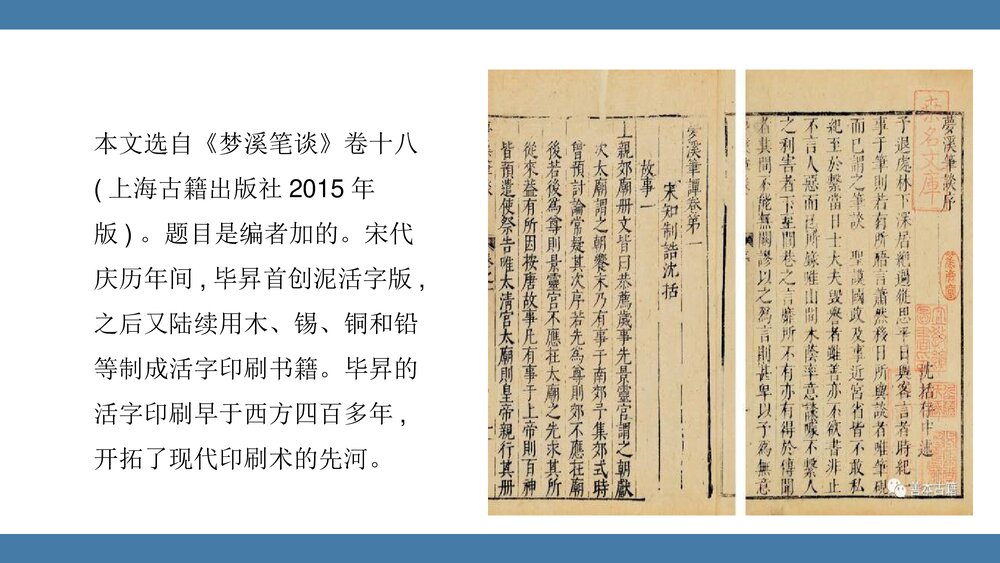 本文选自《梦溪笔谈》卷十八
(上海古籍出版社 2015 年
版)。题目是编者加的。宋代
庆历年间,毕昇首创泥活字版,
之后又陆续用木、锡、铜和铅
等制成活字印刷书籍。毕昇的
活字印刷早于西方四百多年,
开拓了现代印刷术的先河。
夢溪筆談序
沈括存中述
予退處林下深居絶過從思平日與客言者時紀一
事于筆則若有所晤言蕭然移日所與談者唯筆硯
而已謂之筆談 聖謨國政及事近宮省皆不敢私
紀至於繫當日士大夫毀譽者雖善亦不欲書非止
不言人惡而已所録唯山間木蔭率意談噱不繫人
之利害者下至閭巷之言靡所不有亦有得於傳聞
者其間不能無闕謬以之爲言則甚卑以予爲無意
夢溪筆譚卷第一
宋知制誥沈括
故事一
上親郊廟册文皆曰恭薦歲事先景靈宫謂之朝獻
次太廟謂之朝饗末乃有事于南郊予集郊式時
曾預討論常疑其次序若先爲尊則郊不應在廟
後若後爲尊則景靈宫不應在太廟之先求其所
從來蓋有所因按唐故事凡有事于上帝則百神
皆預遣使祭告唯太清宫太廟則皇帝親行其册
桒名文庫
善本古籍